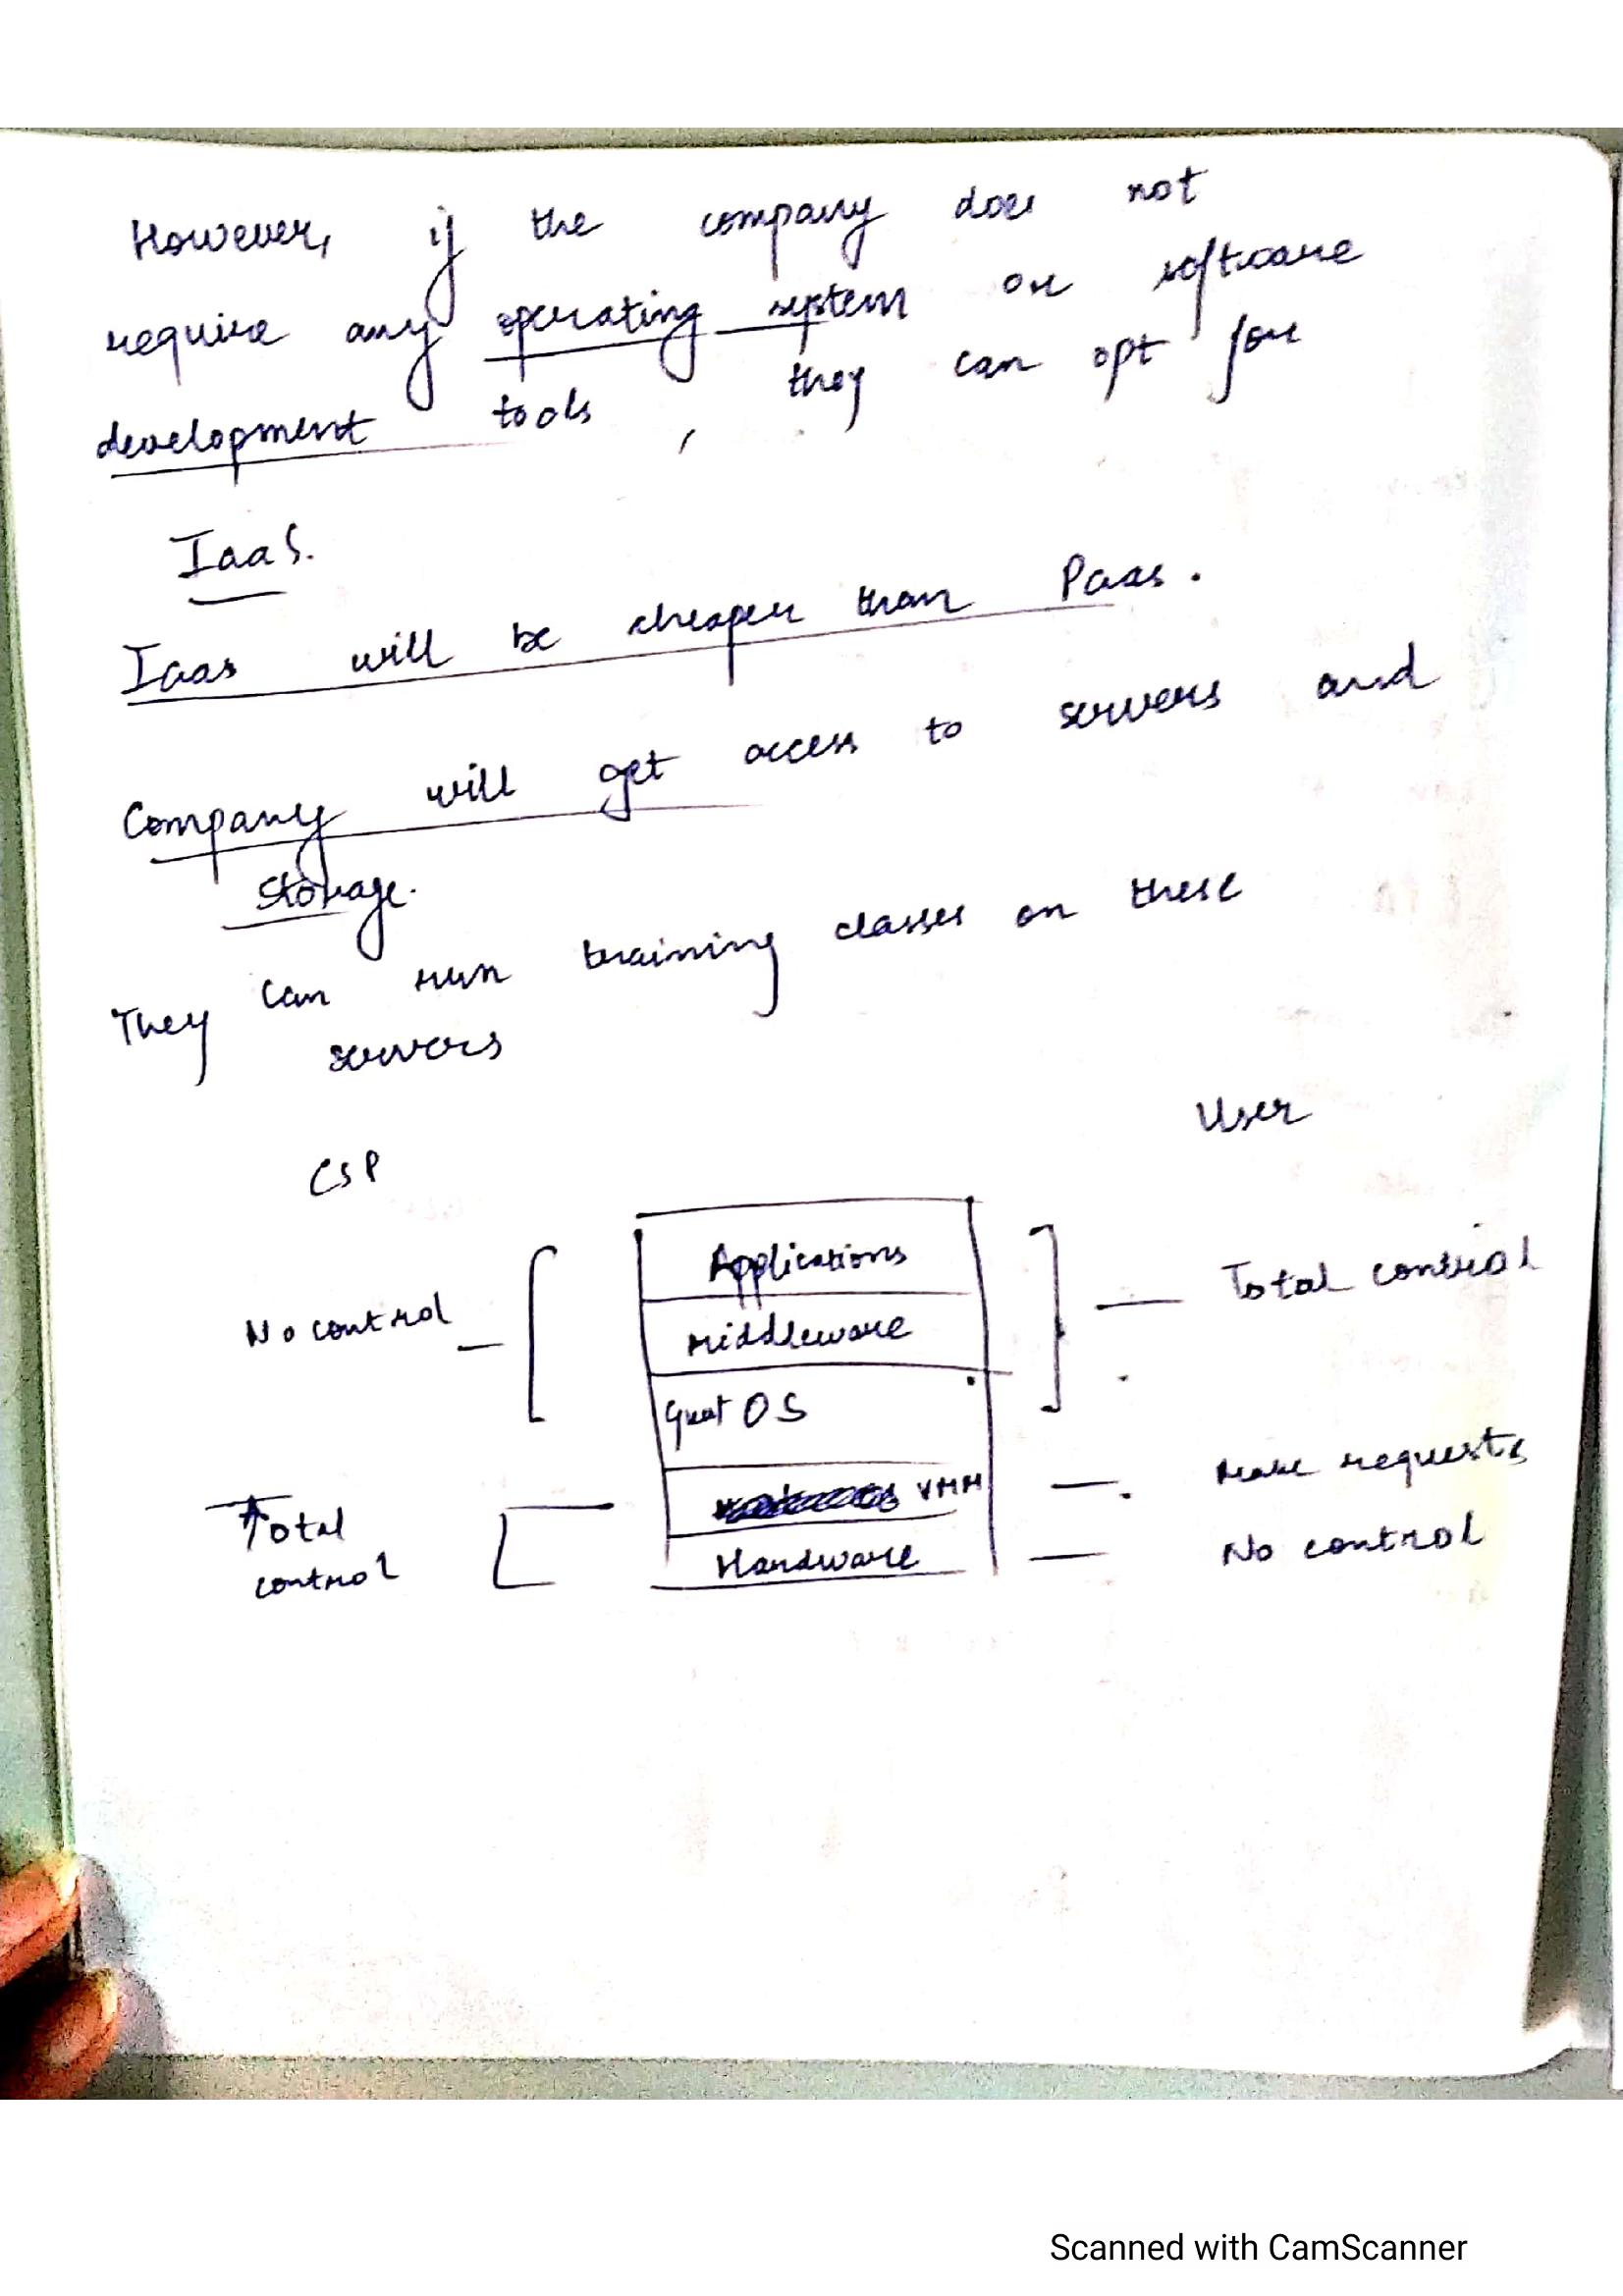 However, if the company does not
require any operating system or software
development tools, they can opt for
IaaS.
Iaas will be cheaper than Paas.
Company will get access to servers and
storage.
They can run training classes on these
servers
CSP User
Applications
No control Middleware Total control
Guest OS
VMM Make requests
Total
control Hardware No control
Scanned with CamScanner